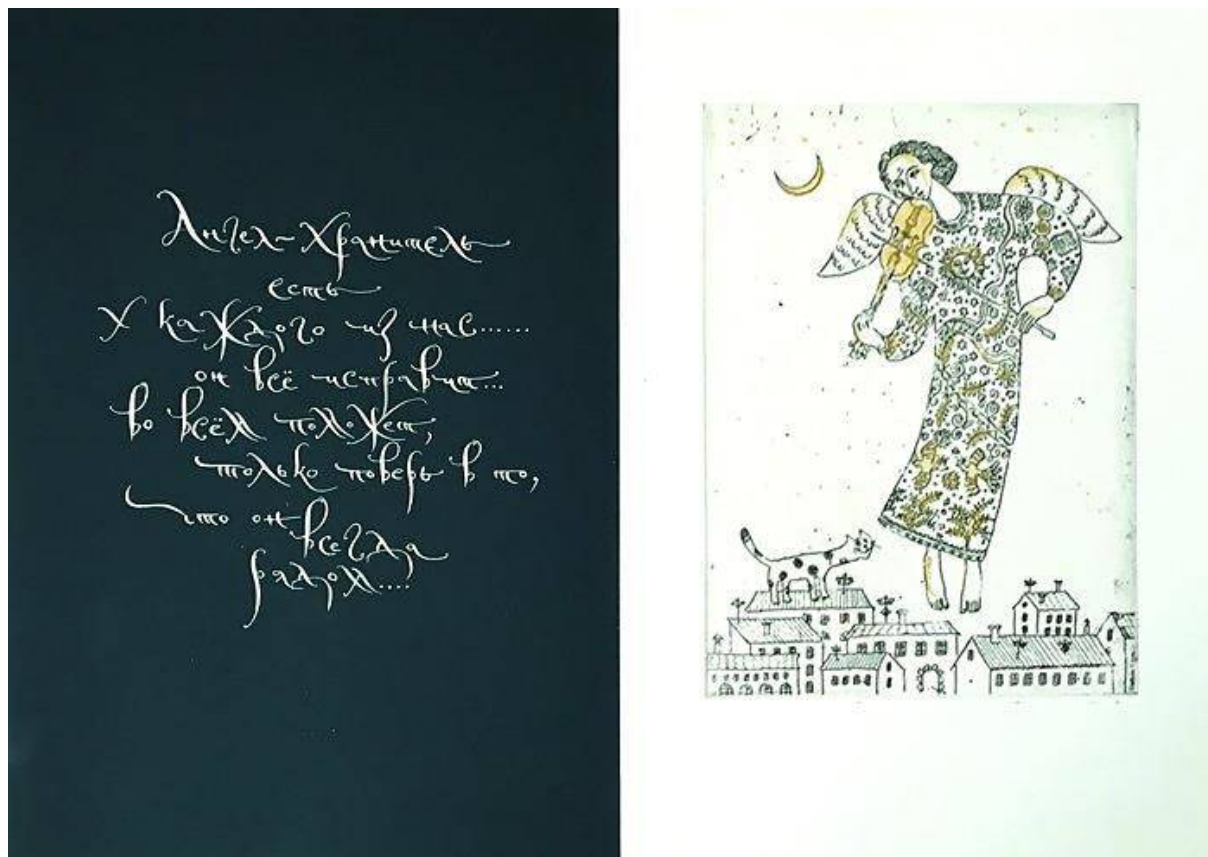 Ангел-Хранитель
есть
У каждого из нас......
он всё исправит...
во всём поможет,
только поверь в то,
что он всегда
рядом....